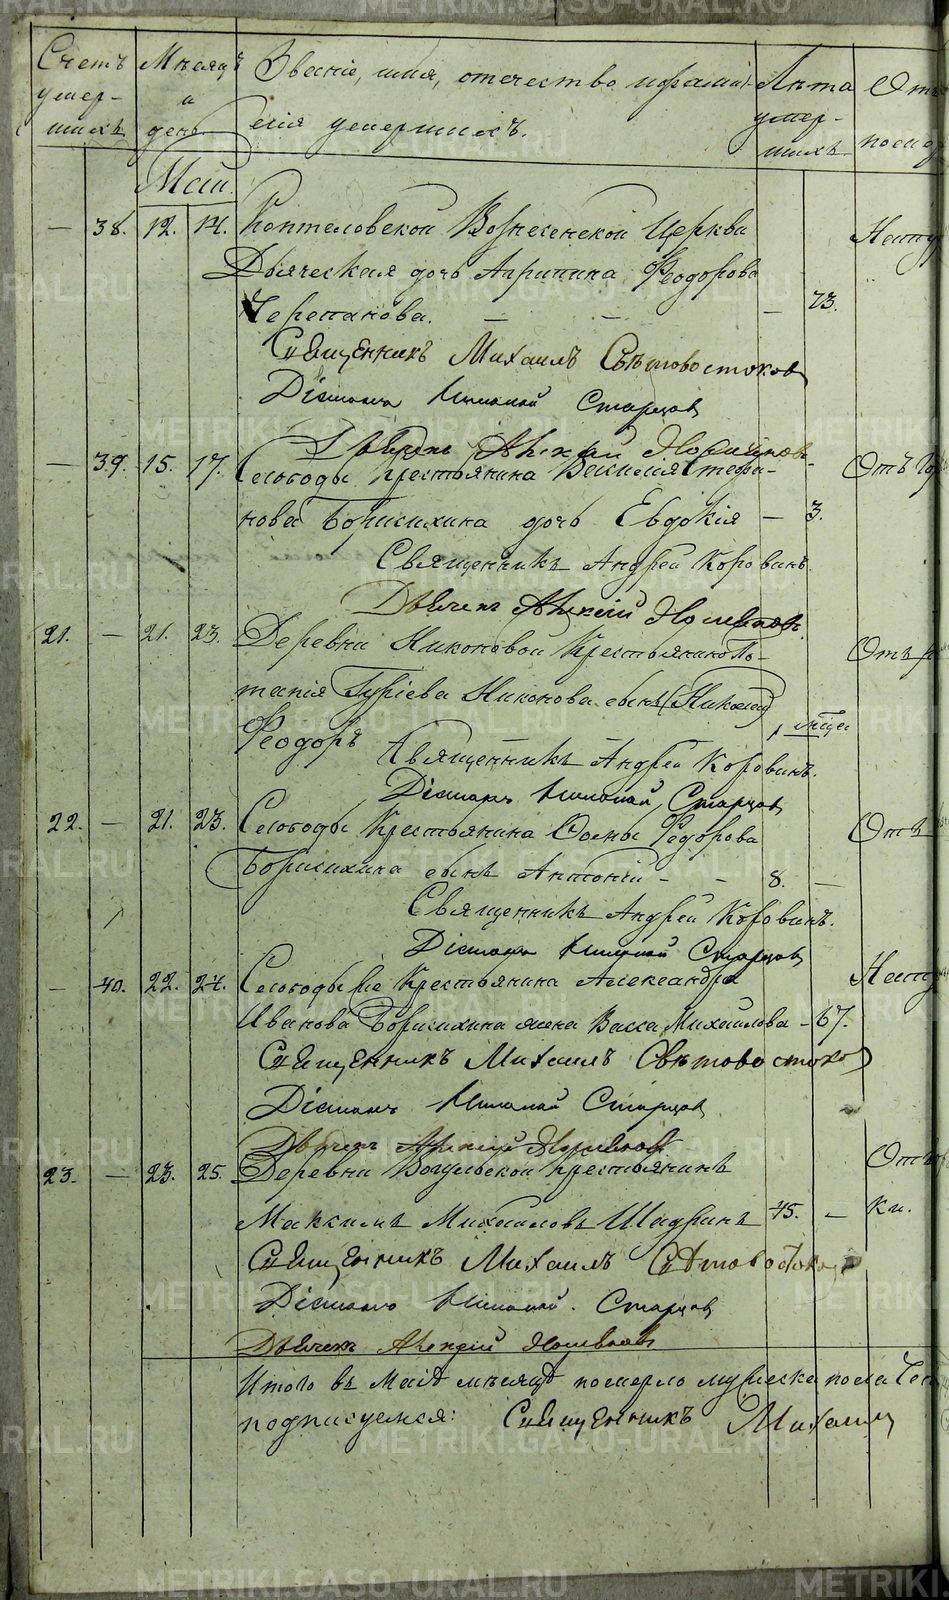 METRIKI.GASO-URAL.RU
Счетъ умер-шихъ
Мѣсяцъ и день.
Званіе, имя, отчество и фами-
лія умершихъ.
Лѣта умер-шихъ
Отъ
Май.
— 38. 12. 14. Коптеловской Вознесенской Церкви
Дьяческая дочь Агрипина Феодорова
Черепанова. — 73.
Священникъ Михаилъ Свѣтовостоковъ
Діаконъ Николай Старцовъ
Дьячекъ Алексѣй
— 39. 15. 17. Слободы Крестьянина Василія Стефа-
нова Борисихина дочь Евдокія — 3. Отъ
Священникъ Андрей Коровинъ.
Дьячекъ Алексѣй
21. — 21. 23. Деревни Никоновой Крестьянина По-
тапія Гурьева Никонова сынъ (Николай)
Феодоръ
Отъ
Священникъ Андрей Коровинъ.
Діаконъ Николай Старцовъ
22. — 21. 23. Слободы Крестьянина Ѳомы Федорова
Борисихина сынъ Антоній - - 8. — Отъ
Священникъ Андрей Коровинъ.
Діаконъ Николай Старцовъ
— 40. 22. 24. Слободы Крестьянина Александра
Иванова Борисихина жена Васса Михайлова — 67.
Священникъ Михаилъ Свѣтовостоковъ
Діаконъ Николай Старцовъ
Дьячекъ Алексѣй
23. — 23. 25. Деревни Вогульской Крестьянинъ
Максимъ Михайловъ Шадринъ 45. —
Священникъ Михаилъ Свѣтовостоковъ
Діаконъ Николай Старцовъ
Дьячекъ Алексѣй
Итого въ Маѣ мѣсяцѣ померло мужеска пола
подписуемся: Священникъ Михаилъ